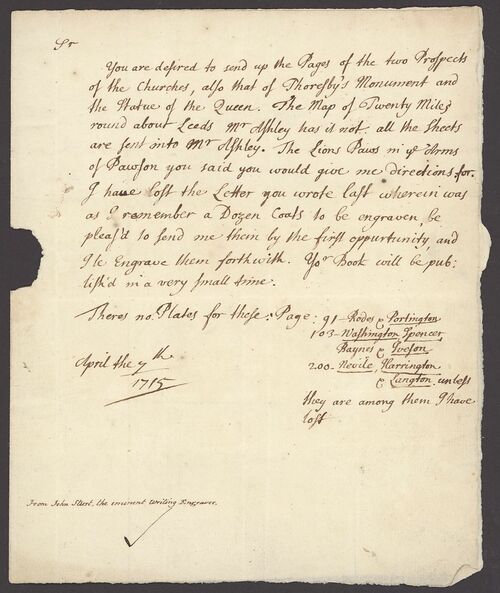 Sr
You are desired to send up the Pages of the two Prospects
of the Churches, also that of Thoresby's Monument and
the Statue of the Queen. The Map of Twenty Miles
round about Leeds Mr Ashley has it not, all the Sheets
are sent into Mr Ashley. The Lions Paws in ye Arms
of Pawson you said you would give me directions for.
I have lost the Letter you wrote last wherein was
as I remember a Dozen Coats to be engraven, be
pleas'd to send me them by the first oppurtunity, and
I'le Engrave them forthwith. Yor Book will be pub:
lish'd in a very small time.
Theres no Plates for these: Page: 91 – Rodes & Portington
103 – Washington Spencer
Baynes & Iveson
200 – Nevile, Harrington
& Langton, unless
they are among them I have
lost
April the 7th
1715
From John Sturt, the eminent Writing Engraver.